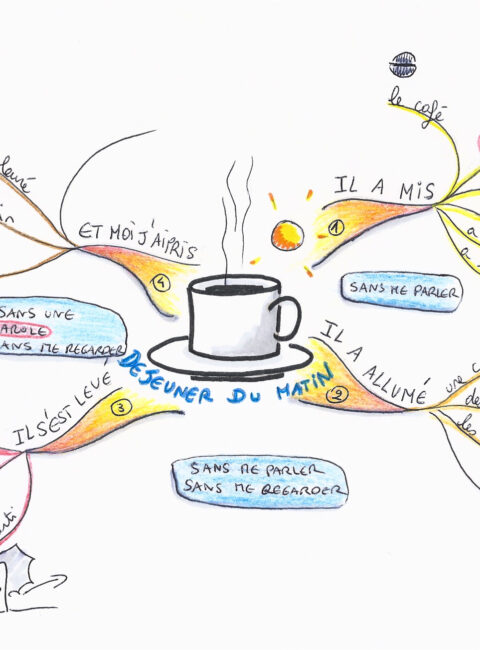 le café
IL A MIS
1
a
a
SANS ME PARLER
IL A ALLUMÉ
2
une c
de
les
SANS ME PARLER
SANS ME REGARDER
IL S'EST LEVÉ
3
rti
SANS UNE
AROLE
ANS ME REGARDER
ET MOI J'AI PRIS
4
leuré
in
DEJEUNER DU MATIN